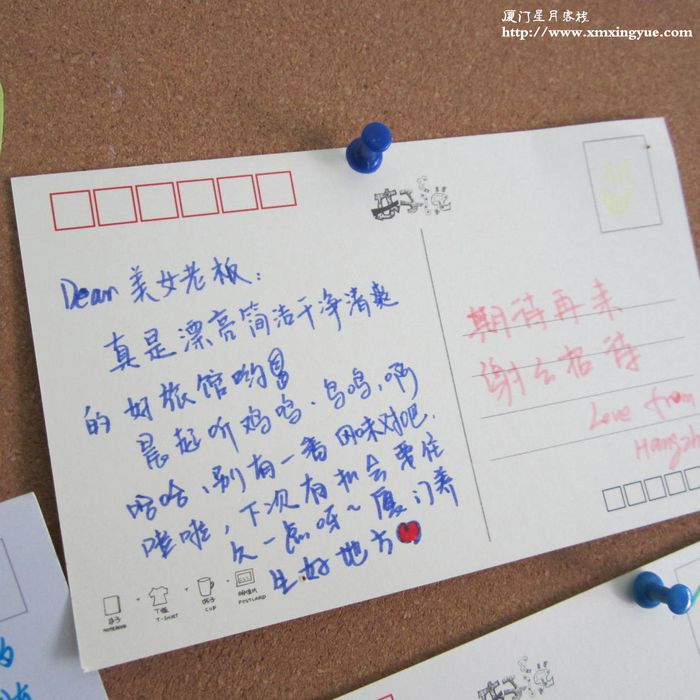 厦门星月客栈
http://www.xmxingyue.com/
Dear 美女老板:
真是漂亮简洁干净清爽
的好旅馆哟
晨起听鸡鸣、鸟鸣,啊
哈哈,别有一番风味对吧.
哇啦,下次有机会要住
久一点呀~厦门养
生好地方
期待再来
谢谢招待
Love from
Hangzh
本子
NOTEBOOK
T恤
T-SHIRT
杯子
CUP
明信片
POSTCARD